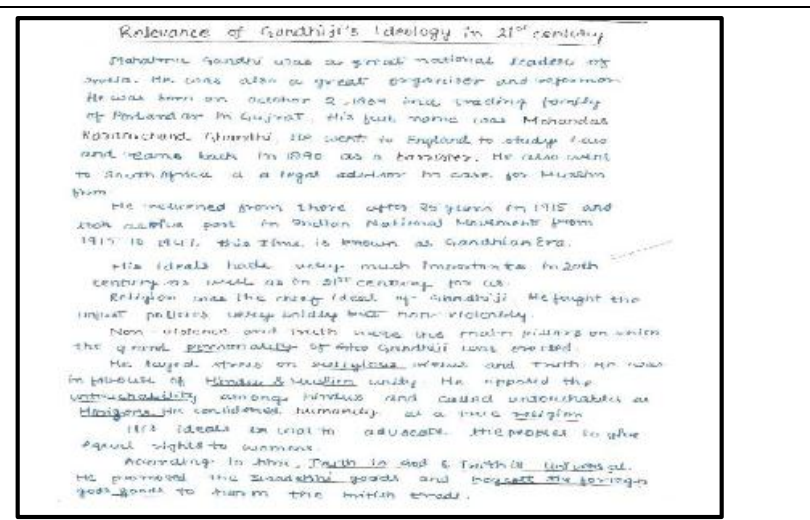 Relevance of Gandhiji's Ideology in 21st century
Mahatma Gandhi was a great national leader of
India. He was also a great organiser and reformer
He was born on October 2, 1869 in a trading family
of Porbandar in Gujrat. His full name was Mohandas
Karamchand Ghandhi. He went to England to study Law
and came back in 1890 as a barrister. He also went
to South Africa a a legal advisor in case for Muslim
firm.
He returned from there after 25 years in 1915 and
took active part in Indian National Movement from
1915 to 1947. this time is known as Gandhian Era.
His ideals have very much in 20th
century as well as in 21st century for us.
Religion was the chief ideal of Gandhiji He fought the
unjust policies very but non violently.
Non-violence and truth were the main pillars on which
the grand personality of Gandhiji was erected.
He layed stress on religious and Truth He was
in favour of Hindu & Muslim unity He opposed the
untouchability among hindus and called untouchables as
He considered humanity as a true religion
His ideals to advocate the peoples to give
equal rights to womens.
According to him, Truth is God & Truth is universal.
He promoted the goods and boycott the foriegn
goods to harm the british trade.